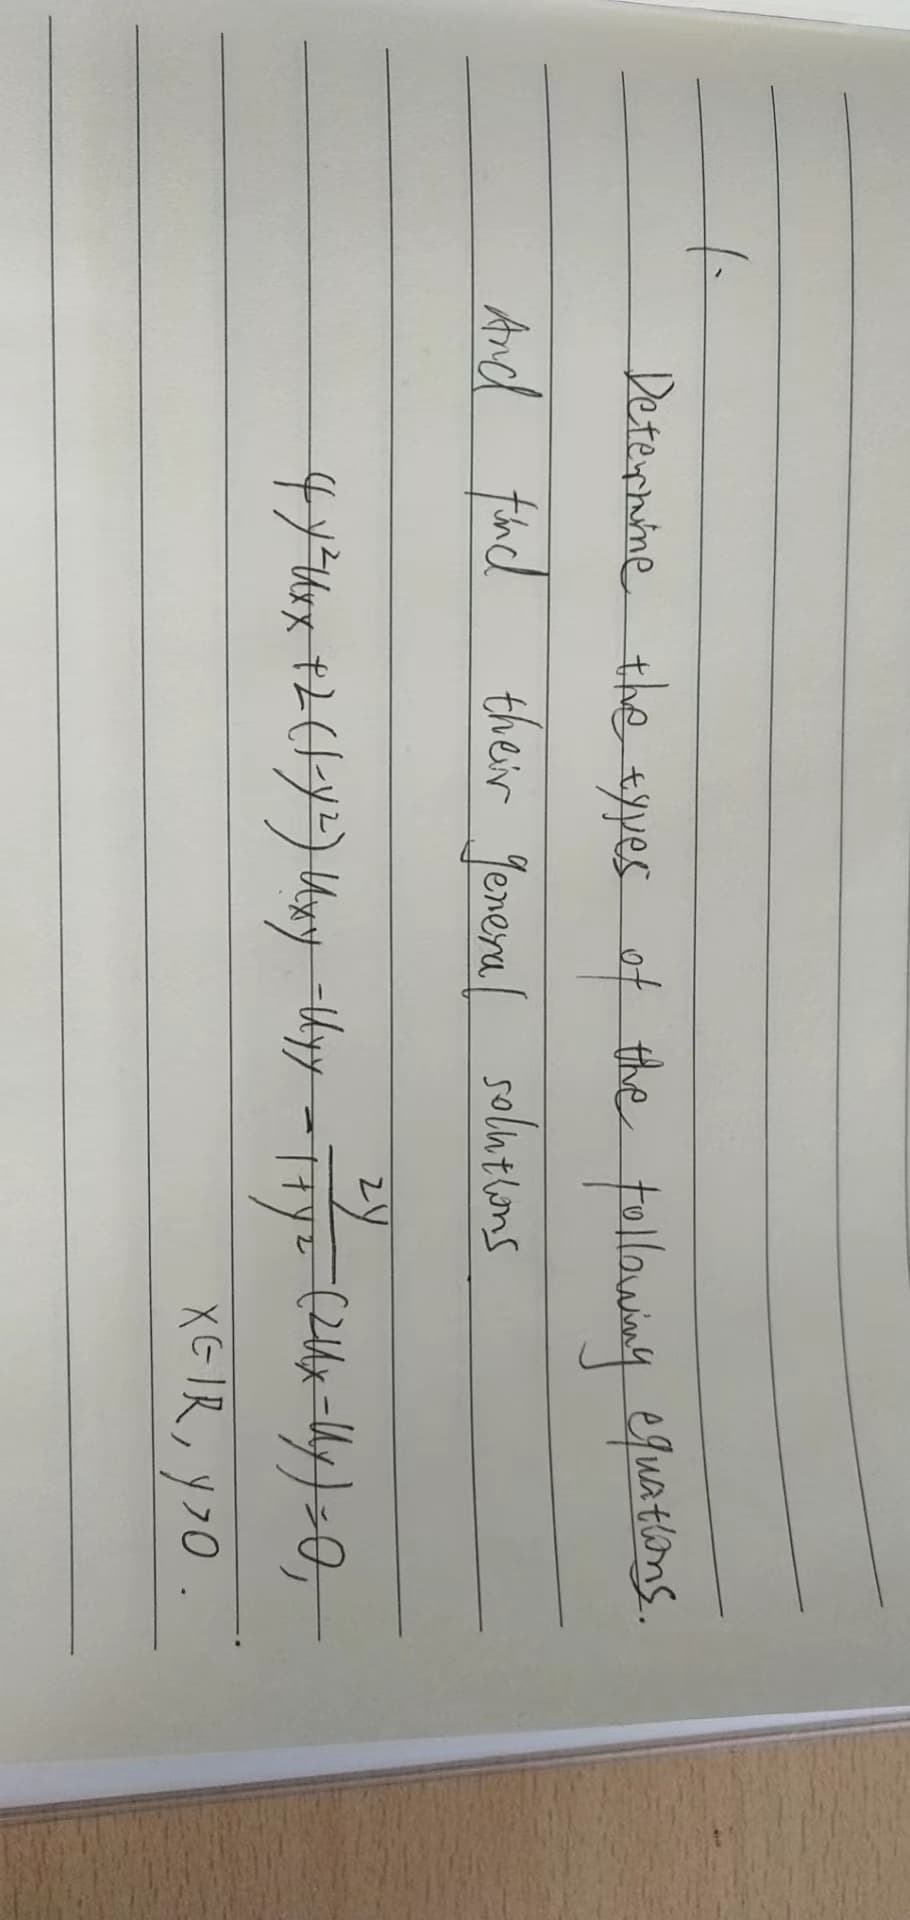 1.
Determine the types of the following equations.
And find their general solutions
4y²uxx + 2(1-y²)uxy - uyy - 2y/1+y² (2ux - uy) = 0,
x∈ℝ, y>0.